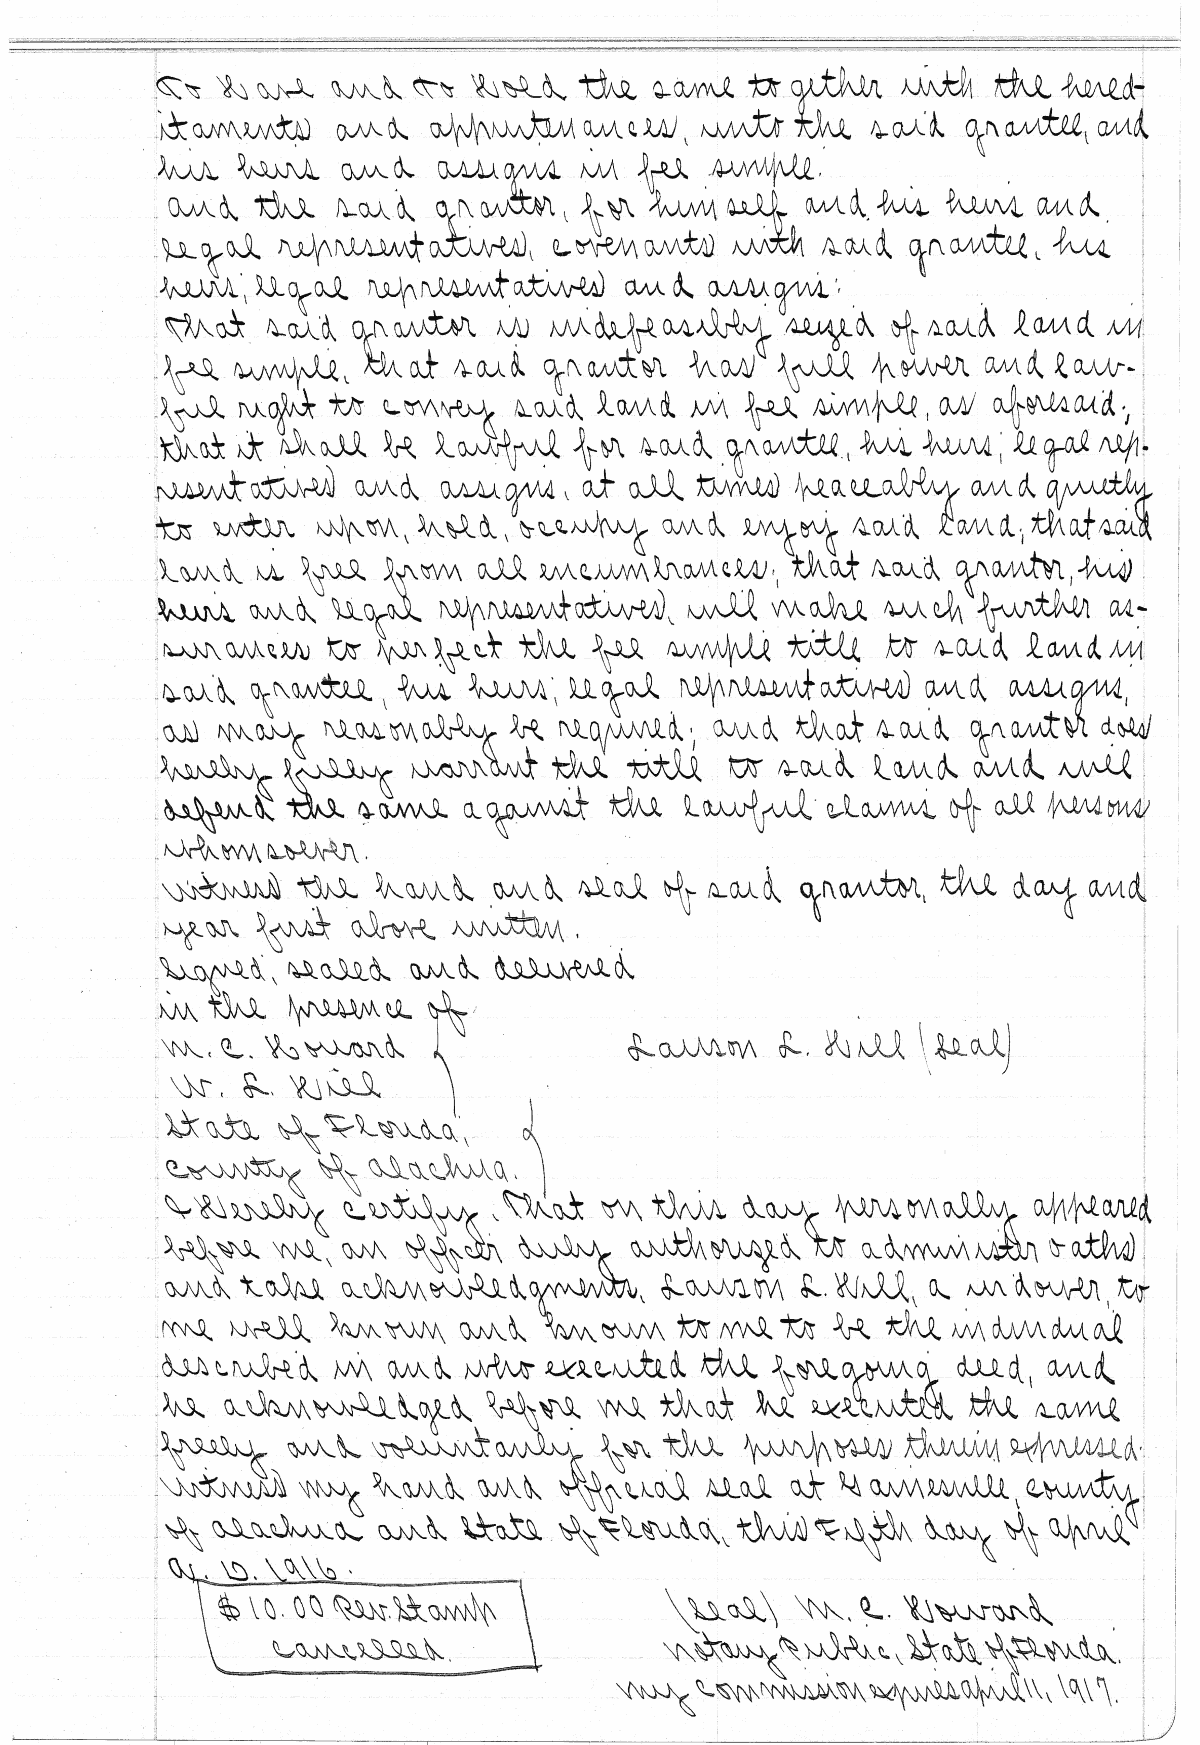 To Have and To Hold the same together with the hered-
itaments and appurtenances, unto the said grantee, and
his heirs and assigns in fee simple.
and the said grantor, for himself and his heirs and
legal representatives, covenants with said grantee, his
heirs, legal representatives and assigns:
That said grantor is indefeasibly seized of said land in
fee simple, that said grantor has full power and law-
ful right to convey said land in fee simple, as aforesaid;
that it shall be lawful for said grantee, his heirs, legal rep-
resentatives and assigns, at all times peaceably and quietly
to enter upon, hold, occupy and enjoy said land; that said
land is free from all encumbrances; that said grantor, his
heirs and legal representatives, will make such further as-
surances to perfect the fee simple title to said land in
said grantee, his heirs, legal representatives and assigns,
as may reasonably be required; and that said grantor does
hereby fully warrant the title to said land and will
defend the same against the lawful claims of all persons
whomsoever.
Witness the hand and seal of said grantor, the day and
year first above written.
Signed, sealed and delivered
in the presence of
M. C. Howard
Lawson L. Hill (Seal)
W. L. Hill
State of Florida,
County of Alachua.
I Hereby certify, That on this day personally appeared
before me, an officer duly authorized to administer oaths
and take acknowledgments, Lawson L. Hill, a widower, to
me well known and known to me to be the individual
described in and who executed the foregoing deed, and
he acknowledged before me that he executed the same
freely and voluntarily for the purposes therein expressed.
Witness my hand and official seal at Gainesville, County
of Alachua and State of Florida, this Fifth day of April
A. D. 1916.
$10.00 Rev. Stamp
Cancelled.
(Seal) M. C. Howard
Notary Public, State of Florida.
My commission expires April 11, 1917.